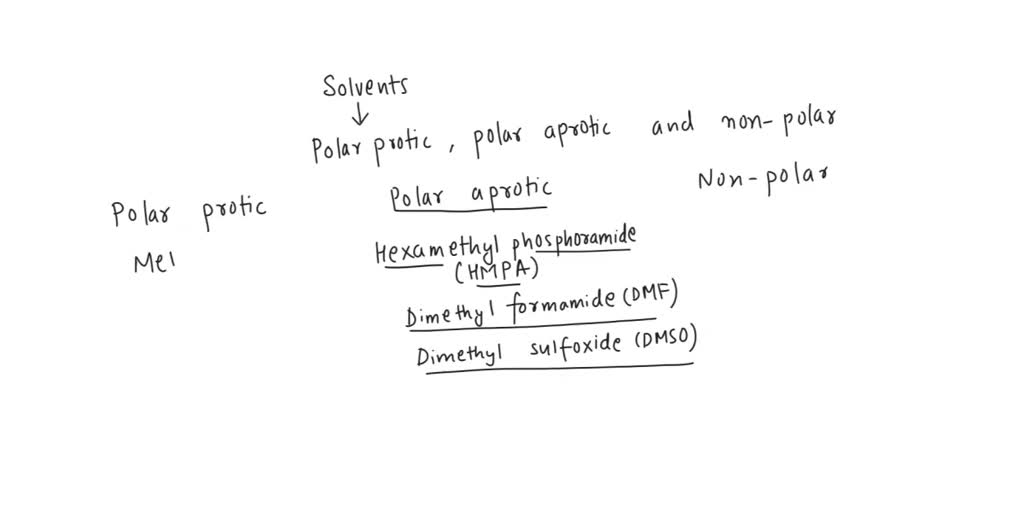 Solvents
Polar protic, polar aprotic and non-polar
Polar protic
Mel
Polar aprotic
Hexamethyl phosphoramide
(HMPA)
Dimethyl formamide (DMF)
Dimethyl sulfoxide (DMSO)
Non-polar